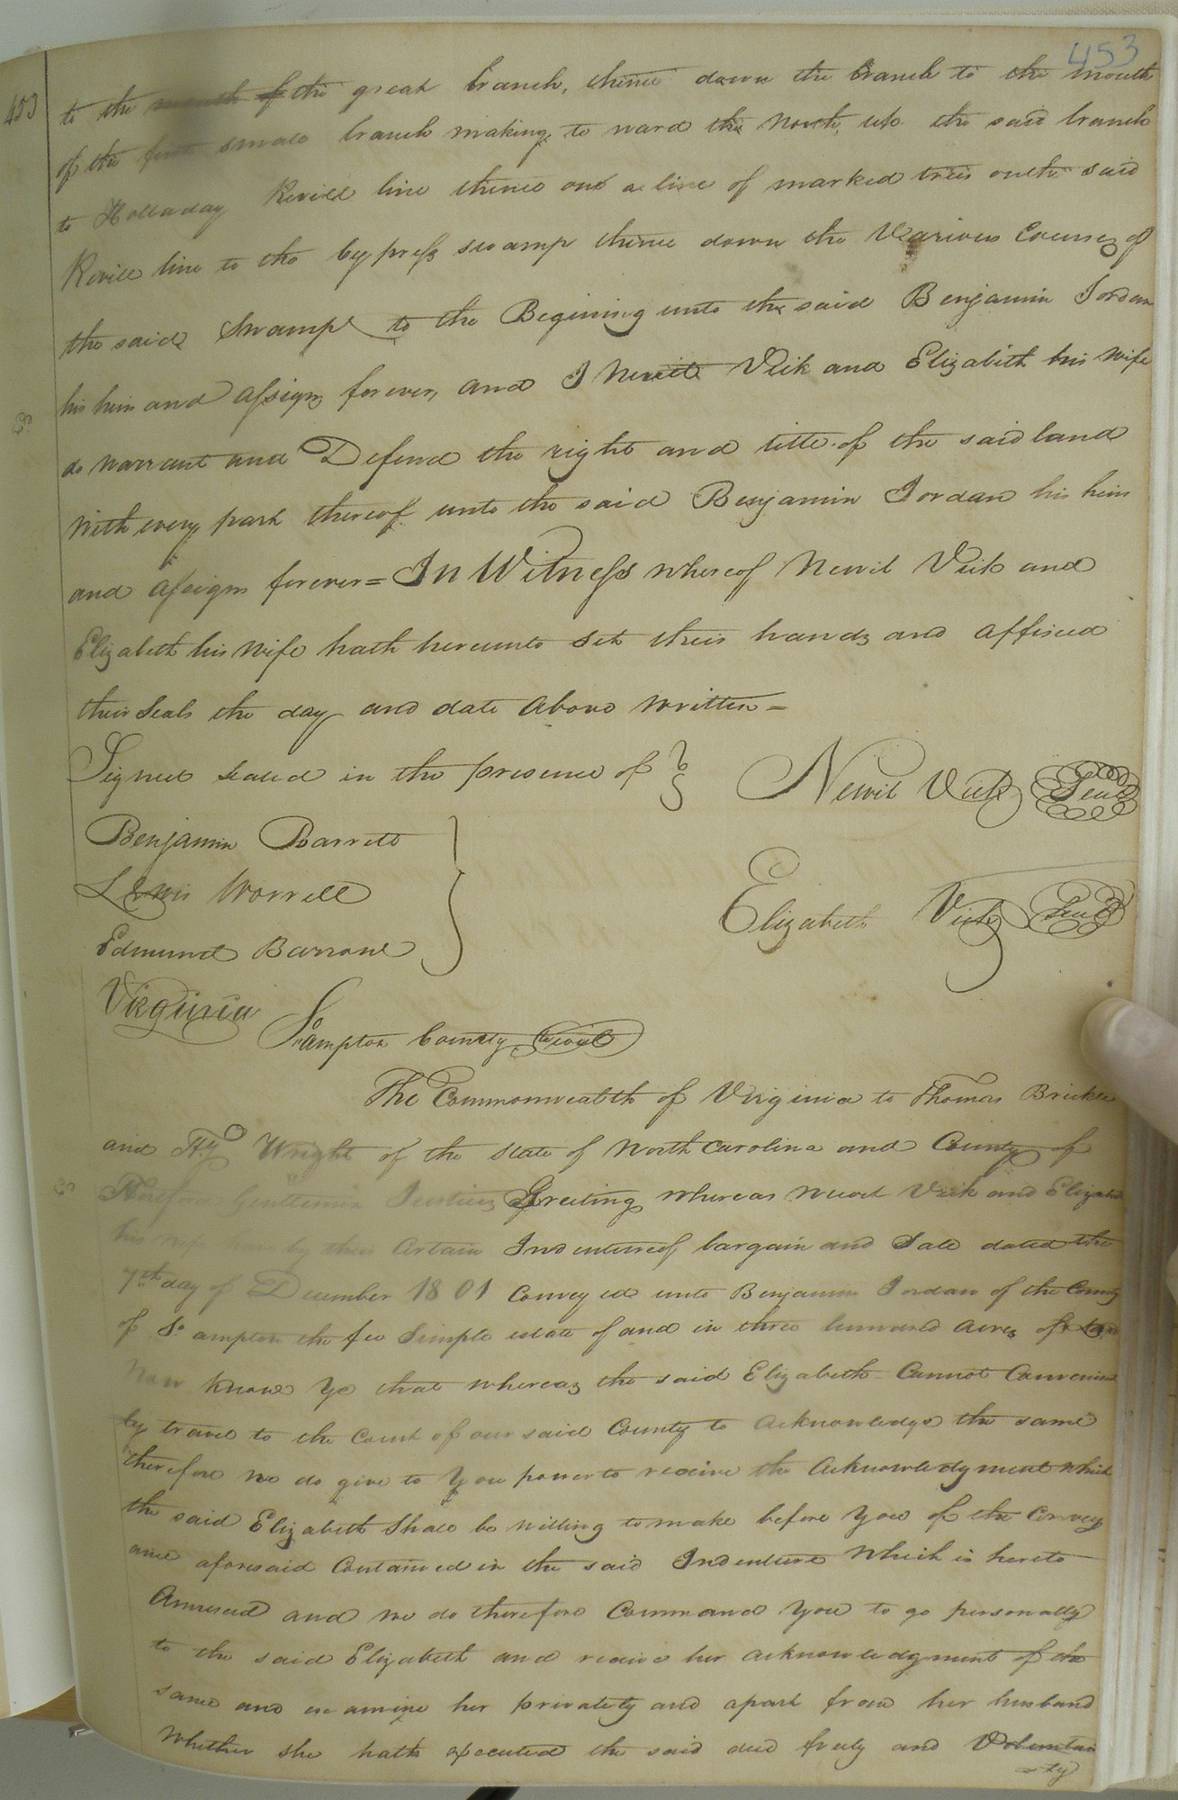 453
453
to the mouth of the great branch, thence down the branch to the mouth
of the first small branch making to ward the North, up the said branch
to Holladay Revill line thence on a line of marked trees on the said
Revill line to the Cypress swamp thence down the Various Courses of
the said Swamp to the Begining unto the said Benjamin Jordan
his heirs and assigns forever, and I Newit Vick and Elizabeth his wife
do warrant and Defend the right and title of the said land
with every part thereof unto the said Benjamin Jordan his heirs
and assigns forever = In Witness whereof Newit Vick and
Elizabeth his wife hath hereunto Set their hands and affixed
their Seals the day and date above written =
Signed Sealed in the presence of
Newit Vick Seal
Benjamin Barrett
Lewis Worrell
Elizabeth Vick Seal
Edmund Barrow
Virginia
So ampton County
The Commonwealth of Virginia to Thomas Brickle
and Hy Wright of the State of North Carolina and County of
Hertford Gentlemen Justices Greeting whereas Newit Vick and Elizabeth
his wife have by their Certain Indenture of bargain and Sale dated the
7th day of December 1801 Conveyed unto Benjamin Jordan of the County
of So ampton the fee Simple estate of and in three hundred acres of Land
Now Know Ye that whereas the said Elizabeth Cannot Convenient
ly travel to the Court of our said County to acknowledge the same
therefore we do give to You power to receive the acknowledgment which
the said Elizabeth Shall be willing to make before You of the Convey
ance aforesaid Contained in the said Indenture which is hereto
Annexed and we do therefore Command You to go personally
to the said Elizabeth and receive her acknowledgment of the
same and examine her privately and apart from her husband
whether she hath executed the said deed freely and Voluntari
ly